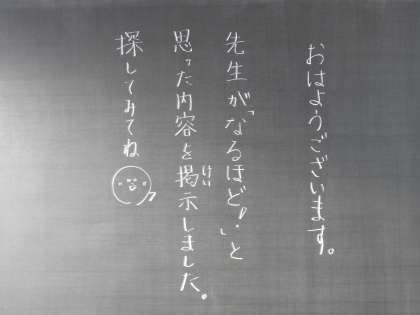 おはようございます。
先生が「なるほど!」と
思った内容を掲示しました。
けい
探してみてね